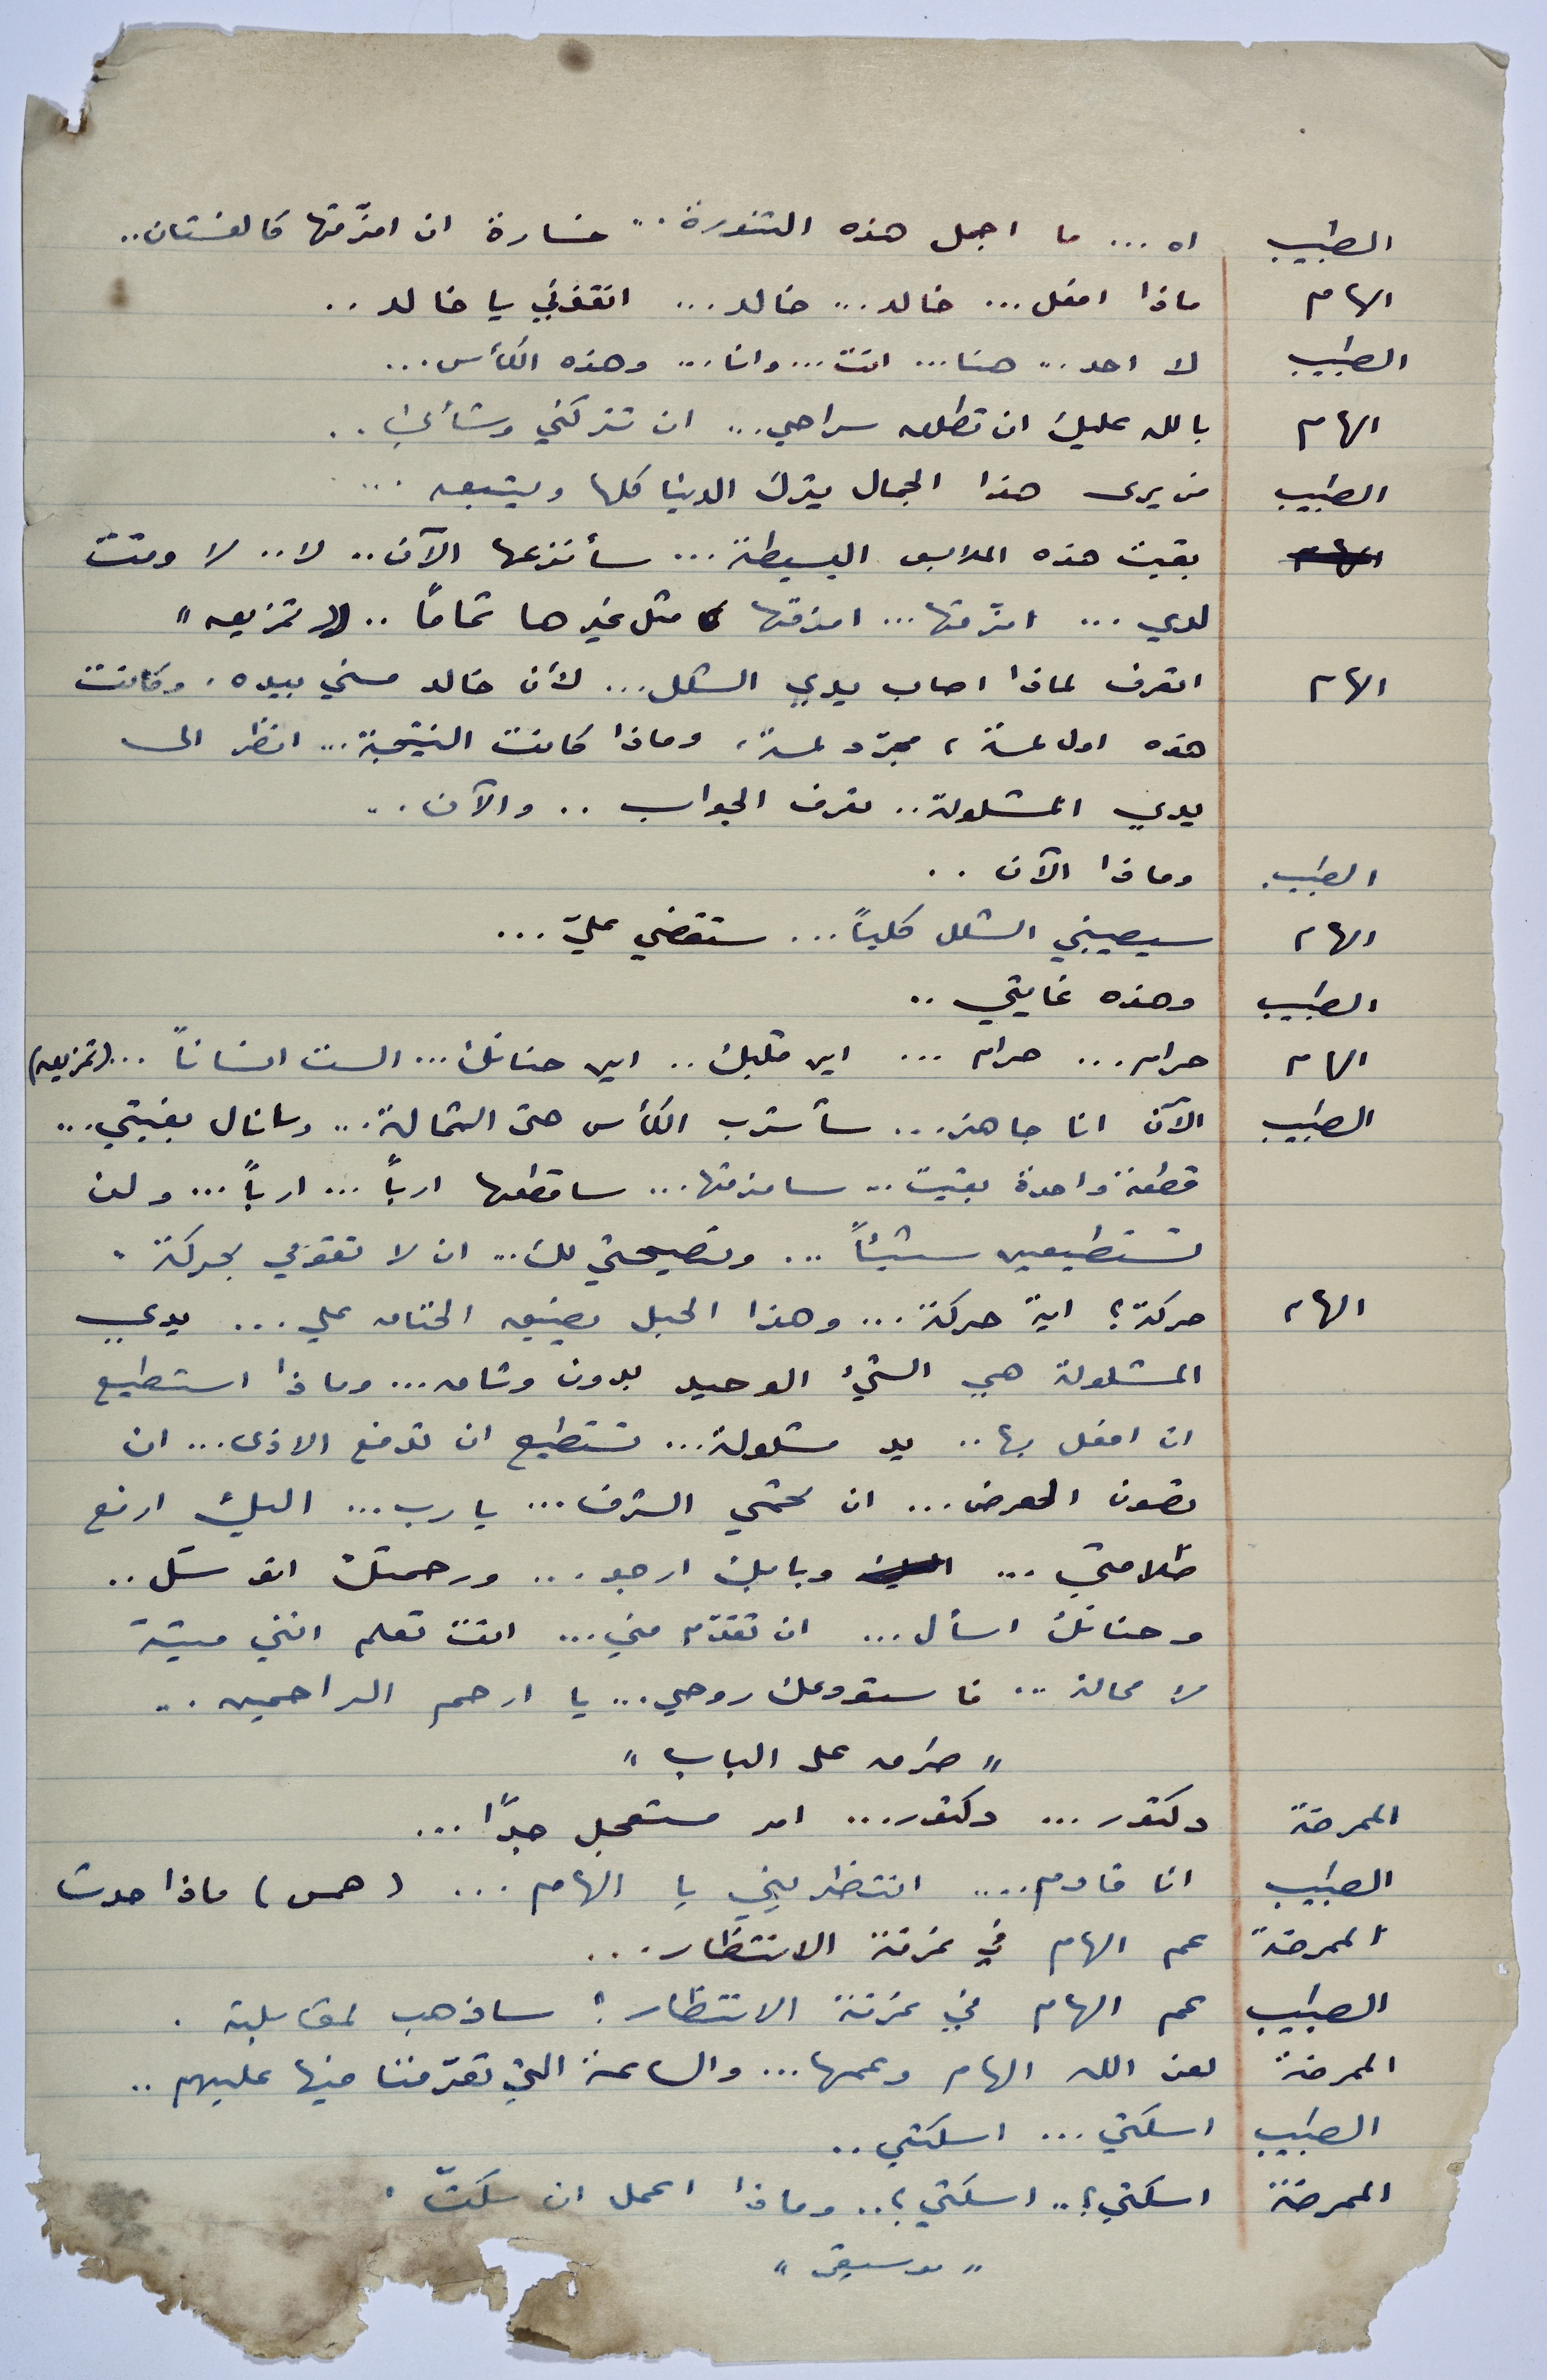 الطبيب اه ... ما اجمل هذه التنورة .. خسارة ان امزّقها كالفستان ..
الهام ماذا افعل ... خالد ... خالد ... انقذني يا خالد ..
الطبيب لا احد .. هنا ... انت ... وانا ... وهذه الكأس ...
الهام بالله عليك ان تطلق سراحي ... ان تتركني وشأني ..
الطبيب من يرى هذا الجمال يترك الدنيا كلها ويتبعه ...
الهام بقيت هذه الملابس البسيطة ... سأنزعها الآن .. لا .. لا وقت
لدي ... امزّقها ... امزقها مثل غيرها تماماً .. " تمزيق "
الهام اتعرف لماذا اصاب يدي الشلل ... لأن خالد مسني بيده . وكانت
هذه اول لمسة ، مجرّد لمسة ، وماذا كانت النتيجة ... انظر الى
يدي المشلولة .. تعرف الجواب .. والآن ..
الطبيب . وماذا الآن ..
الهام سيصيبني الشلل كلياً ... ستقضي عليّ ...
الطبيب وهذه غايتي ..
الهام حرام ... حرام ... اين قلبك .. اين حنانك ... الست انساناً ... (تمزيق)
الطبيب الآن انا جاهز ... سأشرب الكأس حتى الثمالة ... وسانال بغيتي ...
قطعة واحدة بقيت .. سامزقها ... ساقطعها ارباً ... ارباً ... ولن
تستطيعين شيئاً ... ونصيحتي لك ... ان لا تقومي بحركة .
الهام حركة ؟ اية حركة ... وهذا الحبل يضيق الخناق علي ... يدي
المشلولة هي الشيء الوحيد بدون وثاق ... وماذا استطيع
ان افعل بها .. يد مشلولة ... تستطيع ان تدفع الاذى ... ان
تصون العرض ... ان تحمي الشرف ... يا رب ... اليك ارفع
ظلامتي ... اليك وبابك ارجو ... ورحمتك اتوسّل ..
وحنانك اسأل ... ان تقدّم مني ... انت تعلم انني ميتة
لا محالة .. فاستودعك روحي ... يا ارحم الراحمين ..
" طرق على الباب "
الممرضة دكتور ... دكتور ... امر مستعجل جدًا ...
الطبيب انا قادم .... انتظريني يا الهام ... ( همس ) ماذا حدث
الممرضة عم الهام في غرفة الانتظار ...
الطبيب عم الهام في غرفة الانتظار ؟ ساذهب لمقابلته .
الممرضة لعن الله الهام وعمها ... والساعة التي تعرّفنا فيها عليهم ..
الطبيب اسكتي ... اسكتي ..
الممرضة اسكتي ؟ .. اسكتي ؟ .. وماذا اعمل ان سكتّ .
" موسيقى "